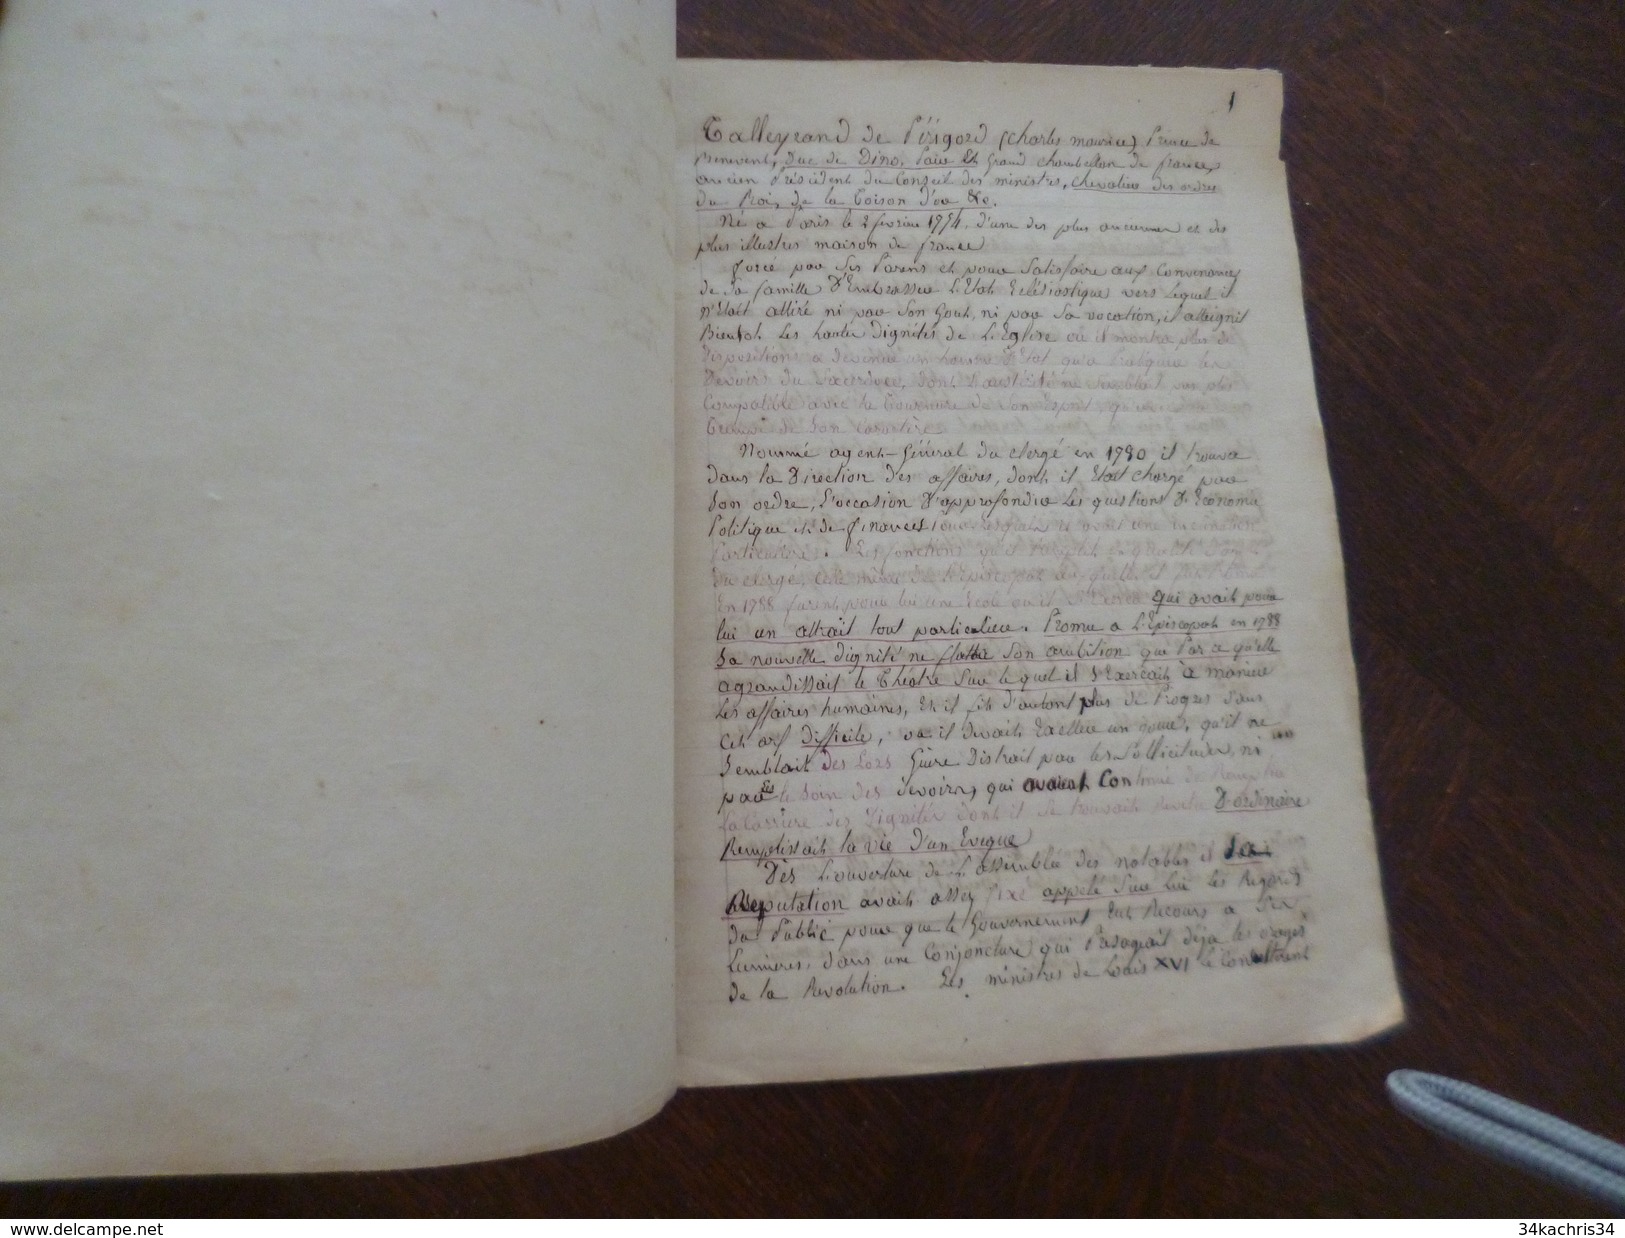 1
Talleyrand de Périgord (Charles maurice) Prince de
Benevent, Duc de Dino, Pair Et Grand chambellan de france,
ancien Président du Conseil des ministres, chevalier des ordres
du Roi, de la Toison d'or &c.
Né a Paris le 2 fevrier 1754, d'une des plus anciennes et des
plus illustres maison de france
forcé par Ses Parens et pour Satisfaire aux Convenances
de Sa famille D'Embrasser L'Etat Eclésiastique vers lequel il
n'Etait attiré ni par Son Gout, ni par Sa vocation, il atteignit
Bientot les hautes Dignités de L'Eglise ou il montra plus de
Dispositions a devenir un homme D'Etat qu'a Pratiquer les
Devoirs du Sacerdoce, dont L'austérité ne Semblait pas plus
Compatible avec la Tournure de Son Esprit, qu'avec la
Trempe de Son caractère
Nommé agent-Général du clergé en 1780 il trouva
dans la Direction des affaires, dont il Etait chargé par
Son ordre, L'occasion D'approfondir les questions D'Economie
Politique et de finances
Particulière. Les fonctions qu'il Remplit en qualité
Du clergé, celle même de L'Episcopat
En 1788 furent pour lui une Ecole ou il qui avait pour
lui un attrait tout particulier. Promu a L'Episcopat en 1788
Sa nouvelle dignité ne flatta Son ambition que Par ce qu'elle
agrandissait le Théâtre Sur le quel il S'Exerçait à manier
les affaires humaines, Et il fit d'autant plus de Progres dans
cet art difficile, ou il devait Exeller un jour, qu'il ne
Semblait des Lors Guère Distrait par les Sollicitudes, ni
par les le Soin des devoirs, qui avaient Con
des Dignités dont il Se trouvait Revetu D'ordinaire
Remplissait la vie d'un Eveque
Dès L'ouverture de L'assemblée des notables il Sa
Reputation avait assez fixé appelé Sur Lui les Regards
du Public pour que le Gouvernement Eut Recours a Ses
Lumieres, dans une Conjoncture qui Présageait déja les orages
de la Revolution. Les ministres de Louis XVI le Consulterent
www.delcampe.net
34kachris34